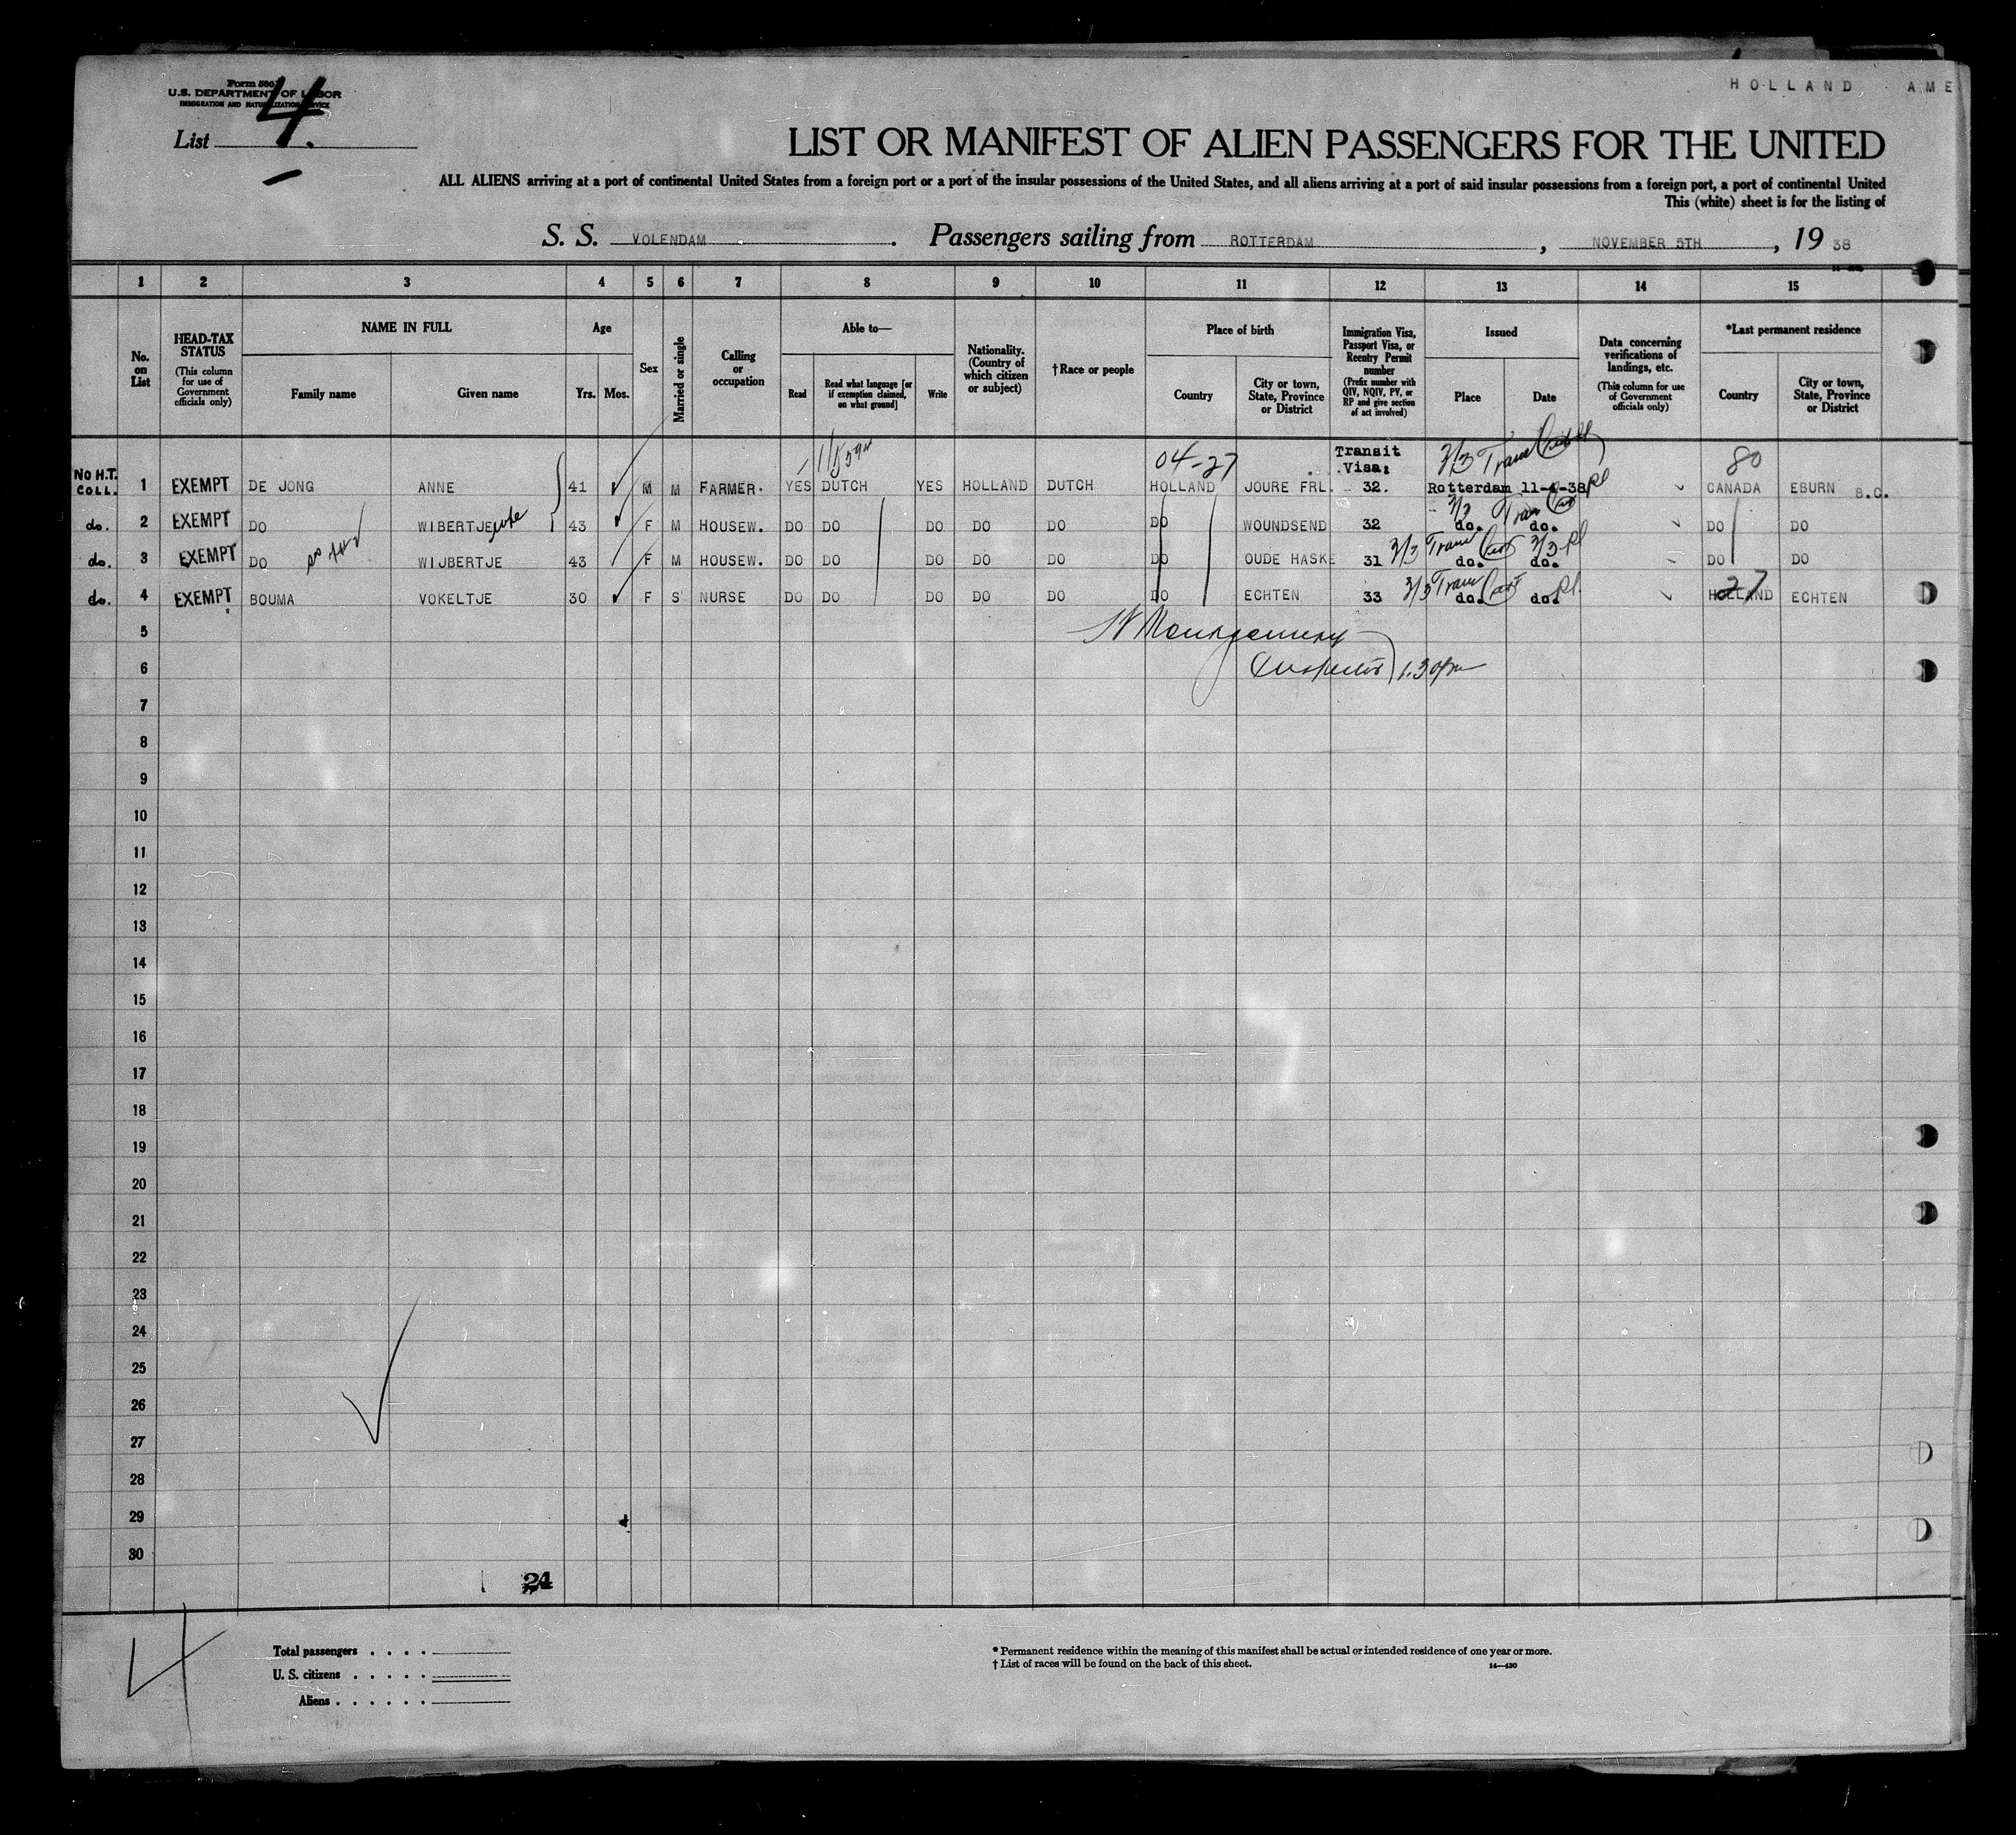 HOLLAND AME
Form 500
U.S. DEPARTMENT OF LABOR
IMMIGRATION AND NATURALIZATION SERVICE
List 4.
LIST OR MANIFEST OF ALIEN PASSENGERS FOR THE UNITED
ALL ALIENS arriving at a port of continental United States from a foreign port or a port of the insular possessions of the United States, and all aliens arriving at a port of said insular possessions from a foreign port, a port of continental United
This (white) sheet is for the listing of
S. S. VOLENDAM. Passengers sailing from ROTTERDAM, NOVEMBER 5TH, 19 38
1 2 3 4 5 6 7 8 9 10 11 12 13 14 15
No. on List
HEAD-TAX STATUS (This column for use of Government officials only)
NAME IN FULL
Family name Given name
Age
Yrs. Mos.
Sex
Married or single
Calling or occupation
Able to—
Read Read what language [or if exemption claimed, on what ground] Write
Nationality. (Country of which citizen or subject)
†Race or people
Place of birth
Country City or town, State, Province or District
Immigration Visa, Passport Visa, or Reentry Permit number (Prefix number with QIV, NQIV, PV, or RP and give section of act involved)
Issued
Place Date
Data concerning verifications of landings, etc. (This column for use of Government officials only)
*Last permanent residence
Country City or town, State, Province or District
04-27 Transit Visa: 80
NO H.T. COLL. 1 EXEMPT DE JONG ANNE 41 M M FARMER. YES DUTCH YES HOLLAND DUTCH HOLLAND JOURE FRL. 32. Rotterdam 11-4-38 CANADA EBURN B.C.
do. 2 EXEMPT DO WIBERTJE wife 43 F M HOUSEW. DO DO DO DO DO DO WOUNDSEND 32 do. do. DO DO
do. 3 EXEMPT DO WIJBERTJE 43 F M HOUSEW. DO DO DO DO DO DO OUDE HASKE 31 do. do. DO DO
do. 4 EXEMPT BOUMA VOKELTJE 30 F S NURSE DO DO DO DO DO DO ECHTEN 33 do. do. HOLLAND 27 ECHTEN
5 Montgomery
6 Inspector 1.30pm
7
8
9
10
11
12
13
14
15
16
17
18
19
20
21
22
23
24
25
26
27
28
29
30
24
4
Total passengers . . . .
U. S. citizens . . . . .
Aliens . . . . . .
* Permanent residence within the meaning of this manifest shall be actual or intended residence of one year or more.
† List of races will be found on the back of this sheet. 14—430